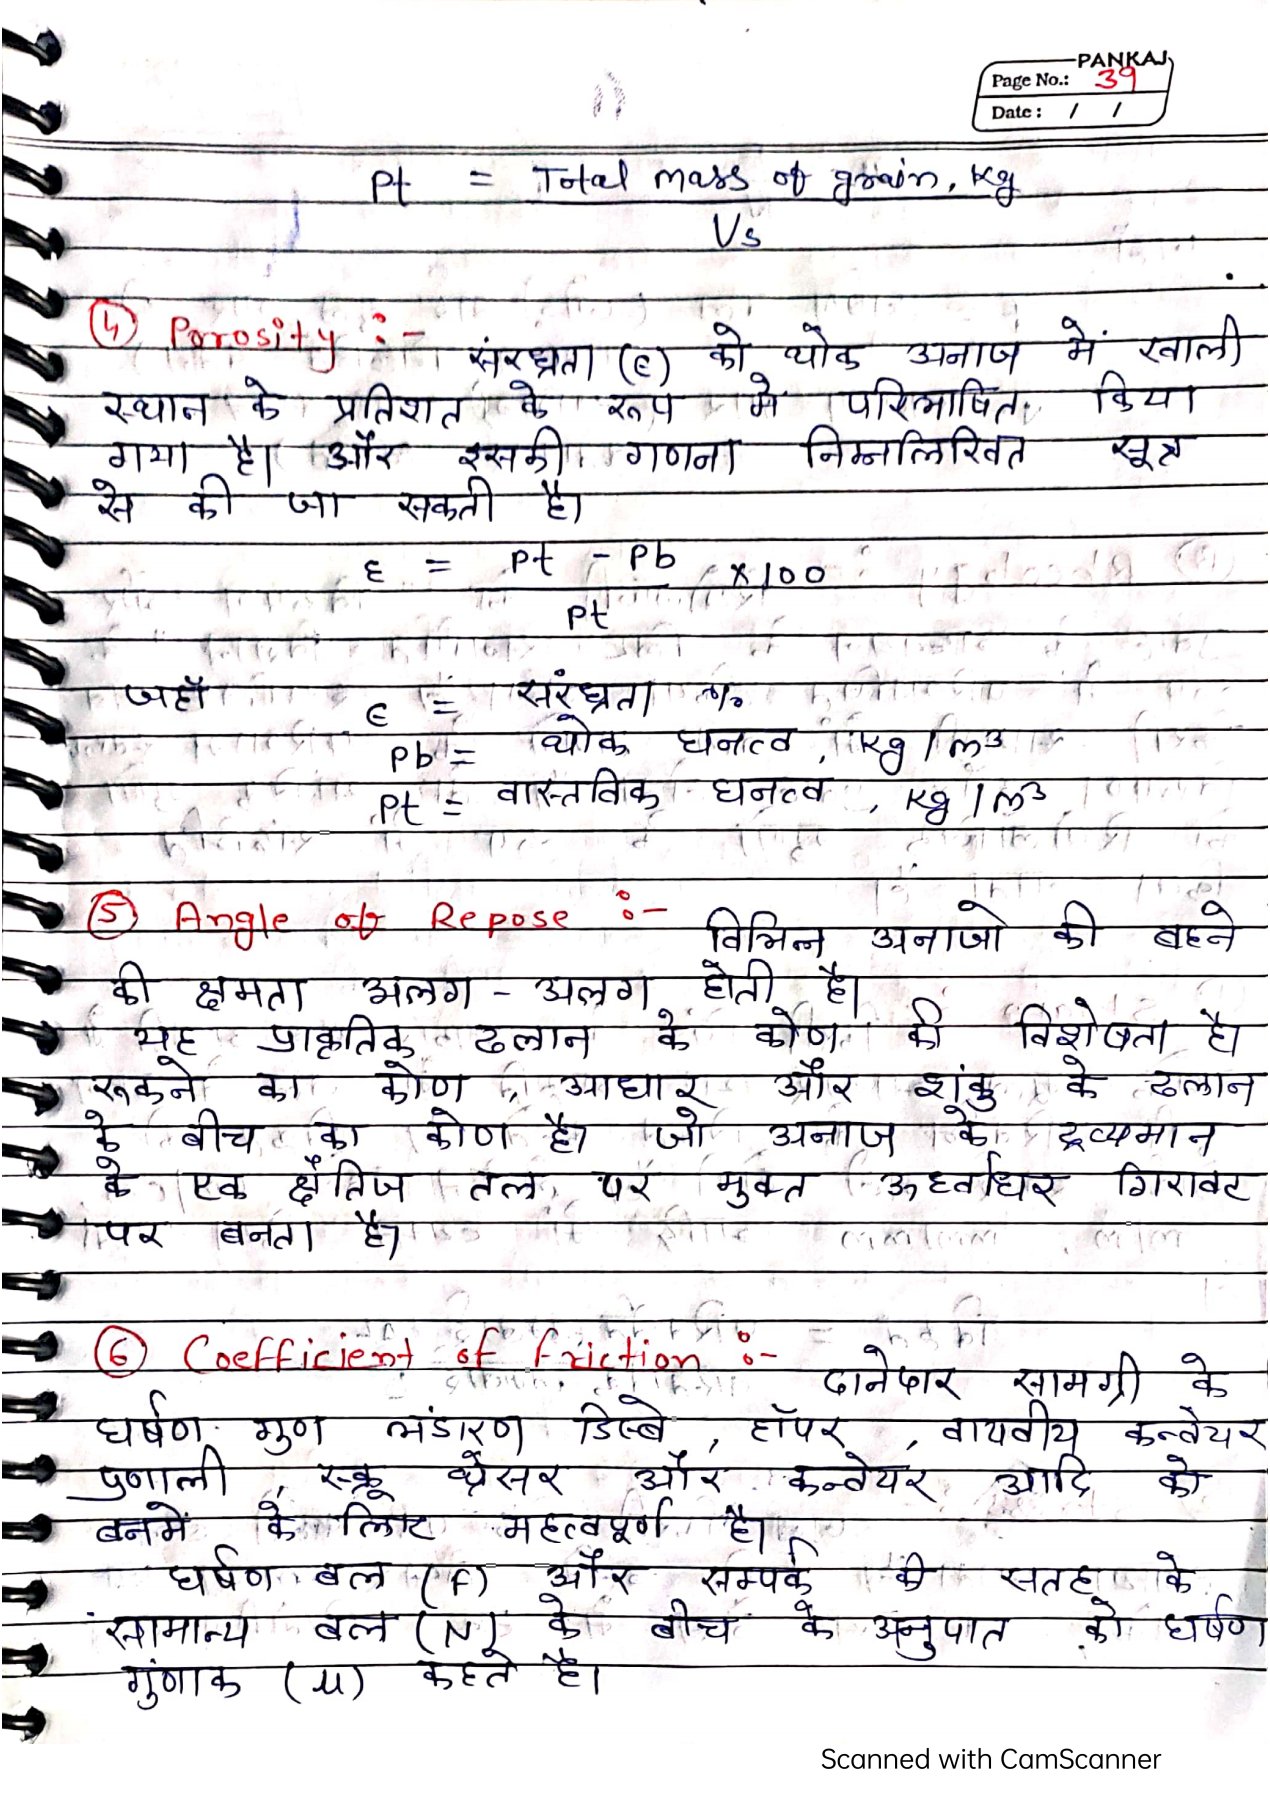 PANKAJ
Page No.: 39
Date : / /
Pt = Total mass of grain, Kg
Vs
④ Porosity :-
संरध्रता (ε) को थोक अनाज में खाली
स्थान के प्रतिशत के रूप मे परिभाषित किया
गया है। और इसकी गणना निम्नलिखित सूत्र
से की जा सकती है।
ε = Pt - Pb × 100
Pt
जहाँ ε = सरंध्रता %
Pb = थोक घनत्व, Kg / m³
Pt = वास्तविक घनत्व, Kg / m³
⑤ Angle of Repose :- विभिन्न अनाजो की बहने
की क्षमता अलग - अलग होती है।
यह प्राकृतिक ढलान के कोण की विशेषता है।
रूकने का कोण, आधार और शंकु के ढलान
के बीच का कोण है। जो अनाज के द्रव्यमान
के एक क्षैतिज तल पर मुक्त ऊर्ध्वाधर गिरावट
पर बनता है।
⑥ Coefficient of friction :- दानेदार सामग्री के
घर्षण गुण भंडारण डिब्बे, हॉपर, वायवीय कन्वेयर
प्रणाली, स्क्रू थ्रेसर और कन्वेयर आदि को
बनमें के लिए महत्वपूर्ण है।
घर्षण बल (F) और सम्पर्क की सतह के
सामान्य बल (N) के बीच के अनुपात को घर्षण
गुंणाक (μ) कहते है।
Scanned with CamScanner